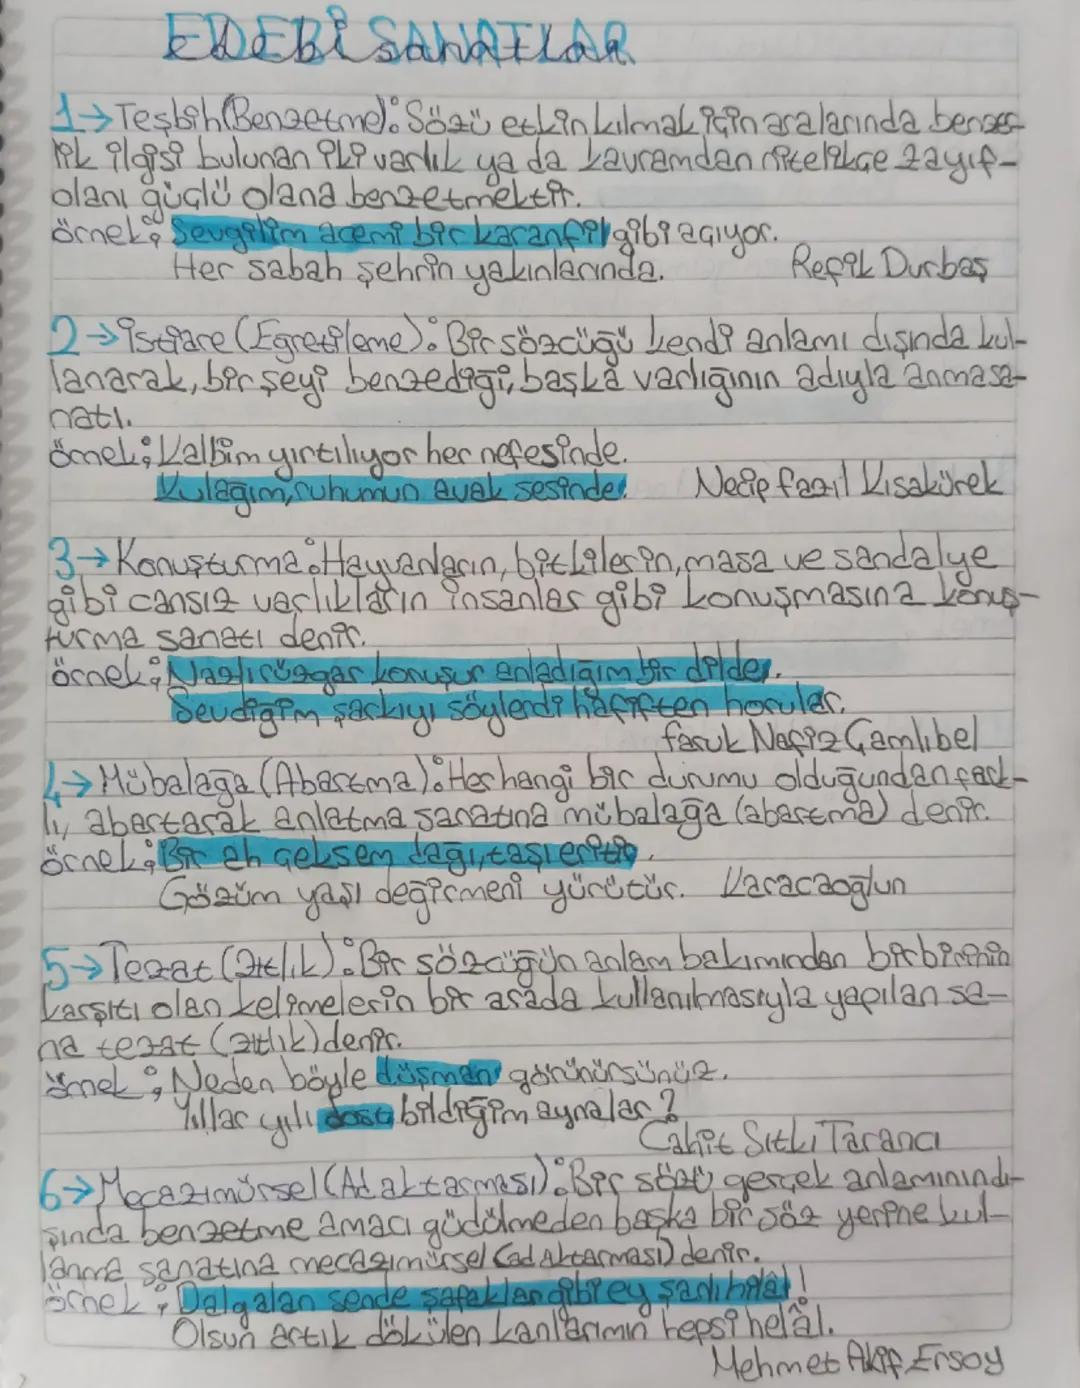 EDEBİ SANATLAR
1→ Teşbih (Benzetme): Sözü etkin kılmak için aralarında benzer-
lik ilgisi bulunan iki varlık ya da kavramdan nitelikçe zayıf
olanı güçlü olana benzetmektir.
örnek; Sevgilim acemi bir karanfil gibi açıyor.
Her sabah şehrin yakınlarında. Refik Durbaş
2→ İstiare (Egretileme): Bir sözcüğü kendi anlamı dışında kul-
lanarak, bir şeyi benzediği, başka varlığının adıyla anma sa-
natı.
örnek; Kalbim yırtılıyor her nefesinde.
Kulağım, ruhumun ayak sesinde. Necip fazıl Kısakürek
3→ Konuşturma: Hayvanların, bitkilerin, masa ve sandalye
gibi cansız varlıkların insanlar gibi konuşmasına konuş-
turma sanatı denir.
örnek; Nazlı rüzgar konuşur anladığım bir dilden.
Sevdiğim şarkıyı söylerdi hafiften horular.
faruk Nafiz Çamlıbel
4→ Mübalağa (Abartma): Herhangi bir durumu olduğundan fark-
lı, abartarak anlatma sanatına mübalağa (abartma) denir.
örnek; Bir ah çeksem dağı, taşı eritir.
Gözüm yaşı değirmeni yürütür. Karacaoğlun
5→ Tezat (Zıtlık): Bir sözcüğün anlam bakımından birbirinin
karşıtı olan kelimelerin bir arada kullanılmasıyla yapılan sa-
na tezat (zıtlık) denir.
örnek; Neden böyle düşman görünürsünüz.
Yıllar yılı dost bildiğim aynalar?
Cahit Sıtkı Tarancı
6→ Mecazımürsel (Ad aktarması): Bir sözü gerçek anlamının dı-
şında benzetme amacı güdülmeden başka bir söz yerine kul-
lanma sanatına mecazımürsel (ad aktarması) denir.
örnek; Dalgalan sende şafaklar gibi ey şanlı hilâl!
Olsun artık dökülen kanlarımın hepsi helâl.
Mehmet Akif Ersoy